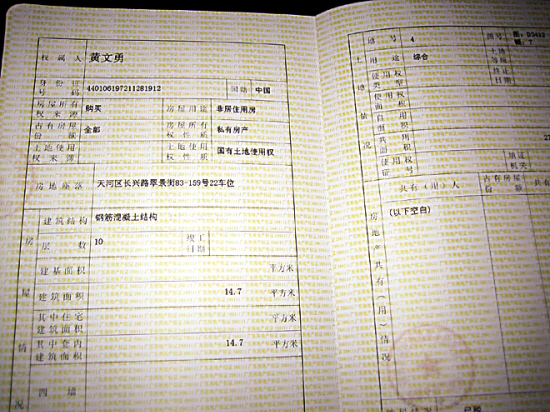 权属人 黄文勇
身份证号码 440106197211281912 国籍 中国
房屋所有权来源 购买 房屋用途 非居住用房
占有房屋份额 全部 房屋所有权性质 私有房产
土地使用权来源 土地使用权性质 国有土地使用权
房地座落 天河区长兴路翠景街83-159号22车位
建筑结构 钢筋混凝土结构
层数 10 竣工日期
建基面积 平方米
建筑面积 14.7 平方米
其中住宅建筑面积 平方米
其中套内建筑面积 14.7 平方米
四墙
房屋情况
地号 4 图号
用途 综合 土地等级
使用权类型 终止日期
使用权面积
自用面积
共用面积
使用权证号 填证机关
共有(用)人 占有房屋份额
(以下空白)
房地产共有(用)情况